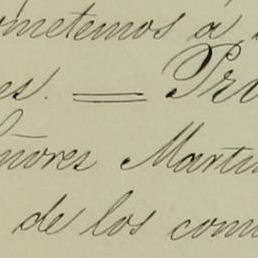 ometemos a
es. = Pro
eñores Martin
de los com